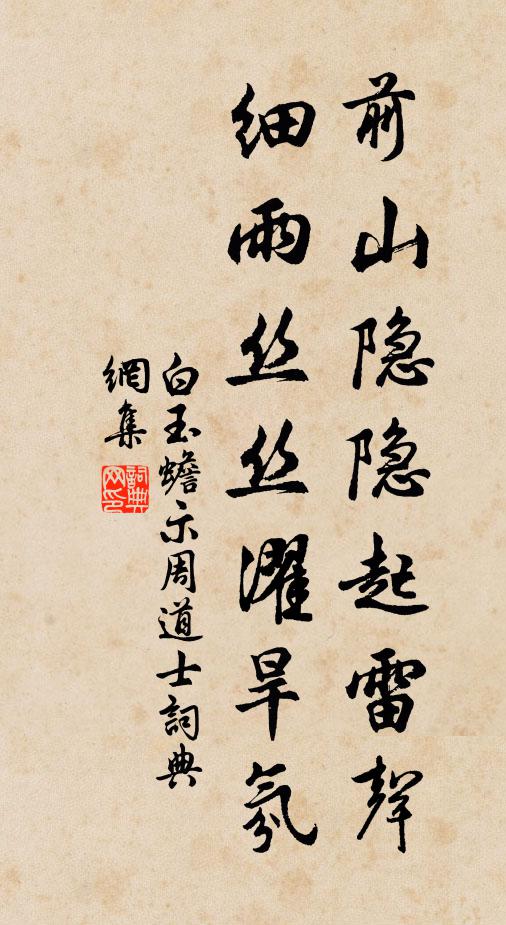 前山隐隐起雷聲
細雨丝丝濯旱氛
白玉蟾示周道士詞典
網集
詞典
网印